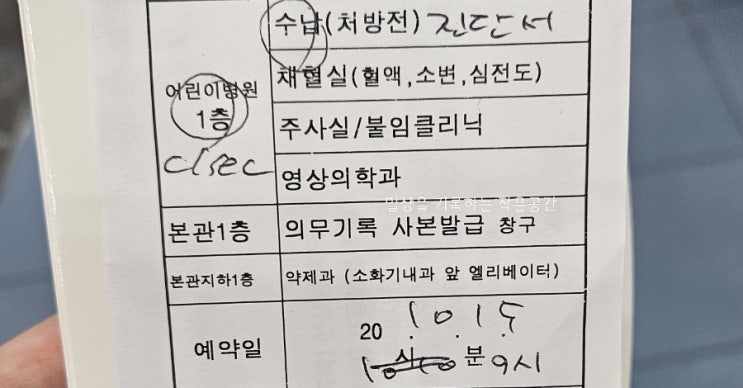 수납(처방전) 진단서
어린이병원
1층
채혈실(혈액,소변,심전도)
주사실/불임클리닉
영상의학과
일상을 기록하는 작은공간
본관1층 의무기록 사본발급 창구
본관지하1층 약제과 (소화기내과 앞 엘리베이터)
예약일
20 . 10 . 15
시 분 9시